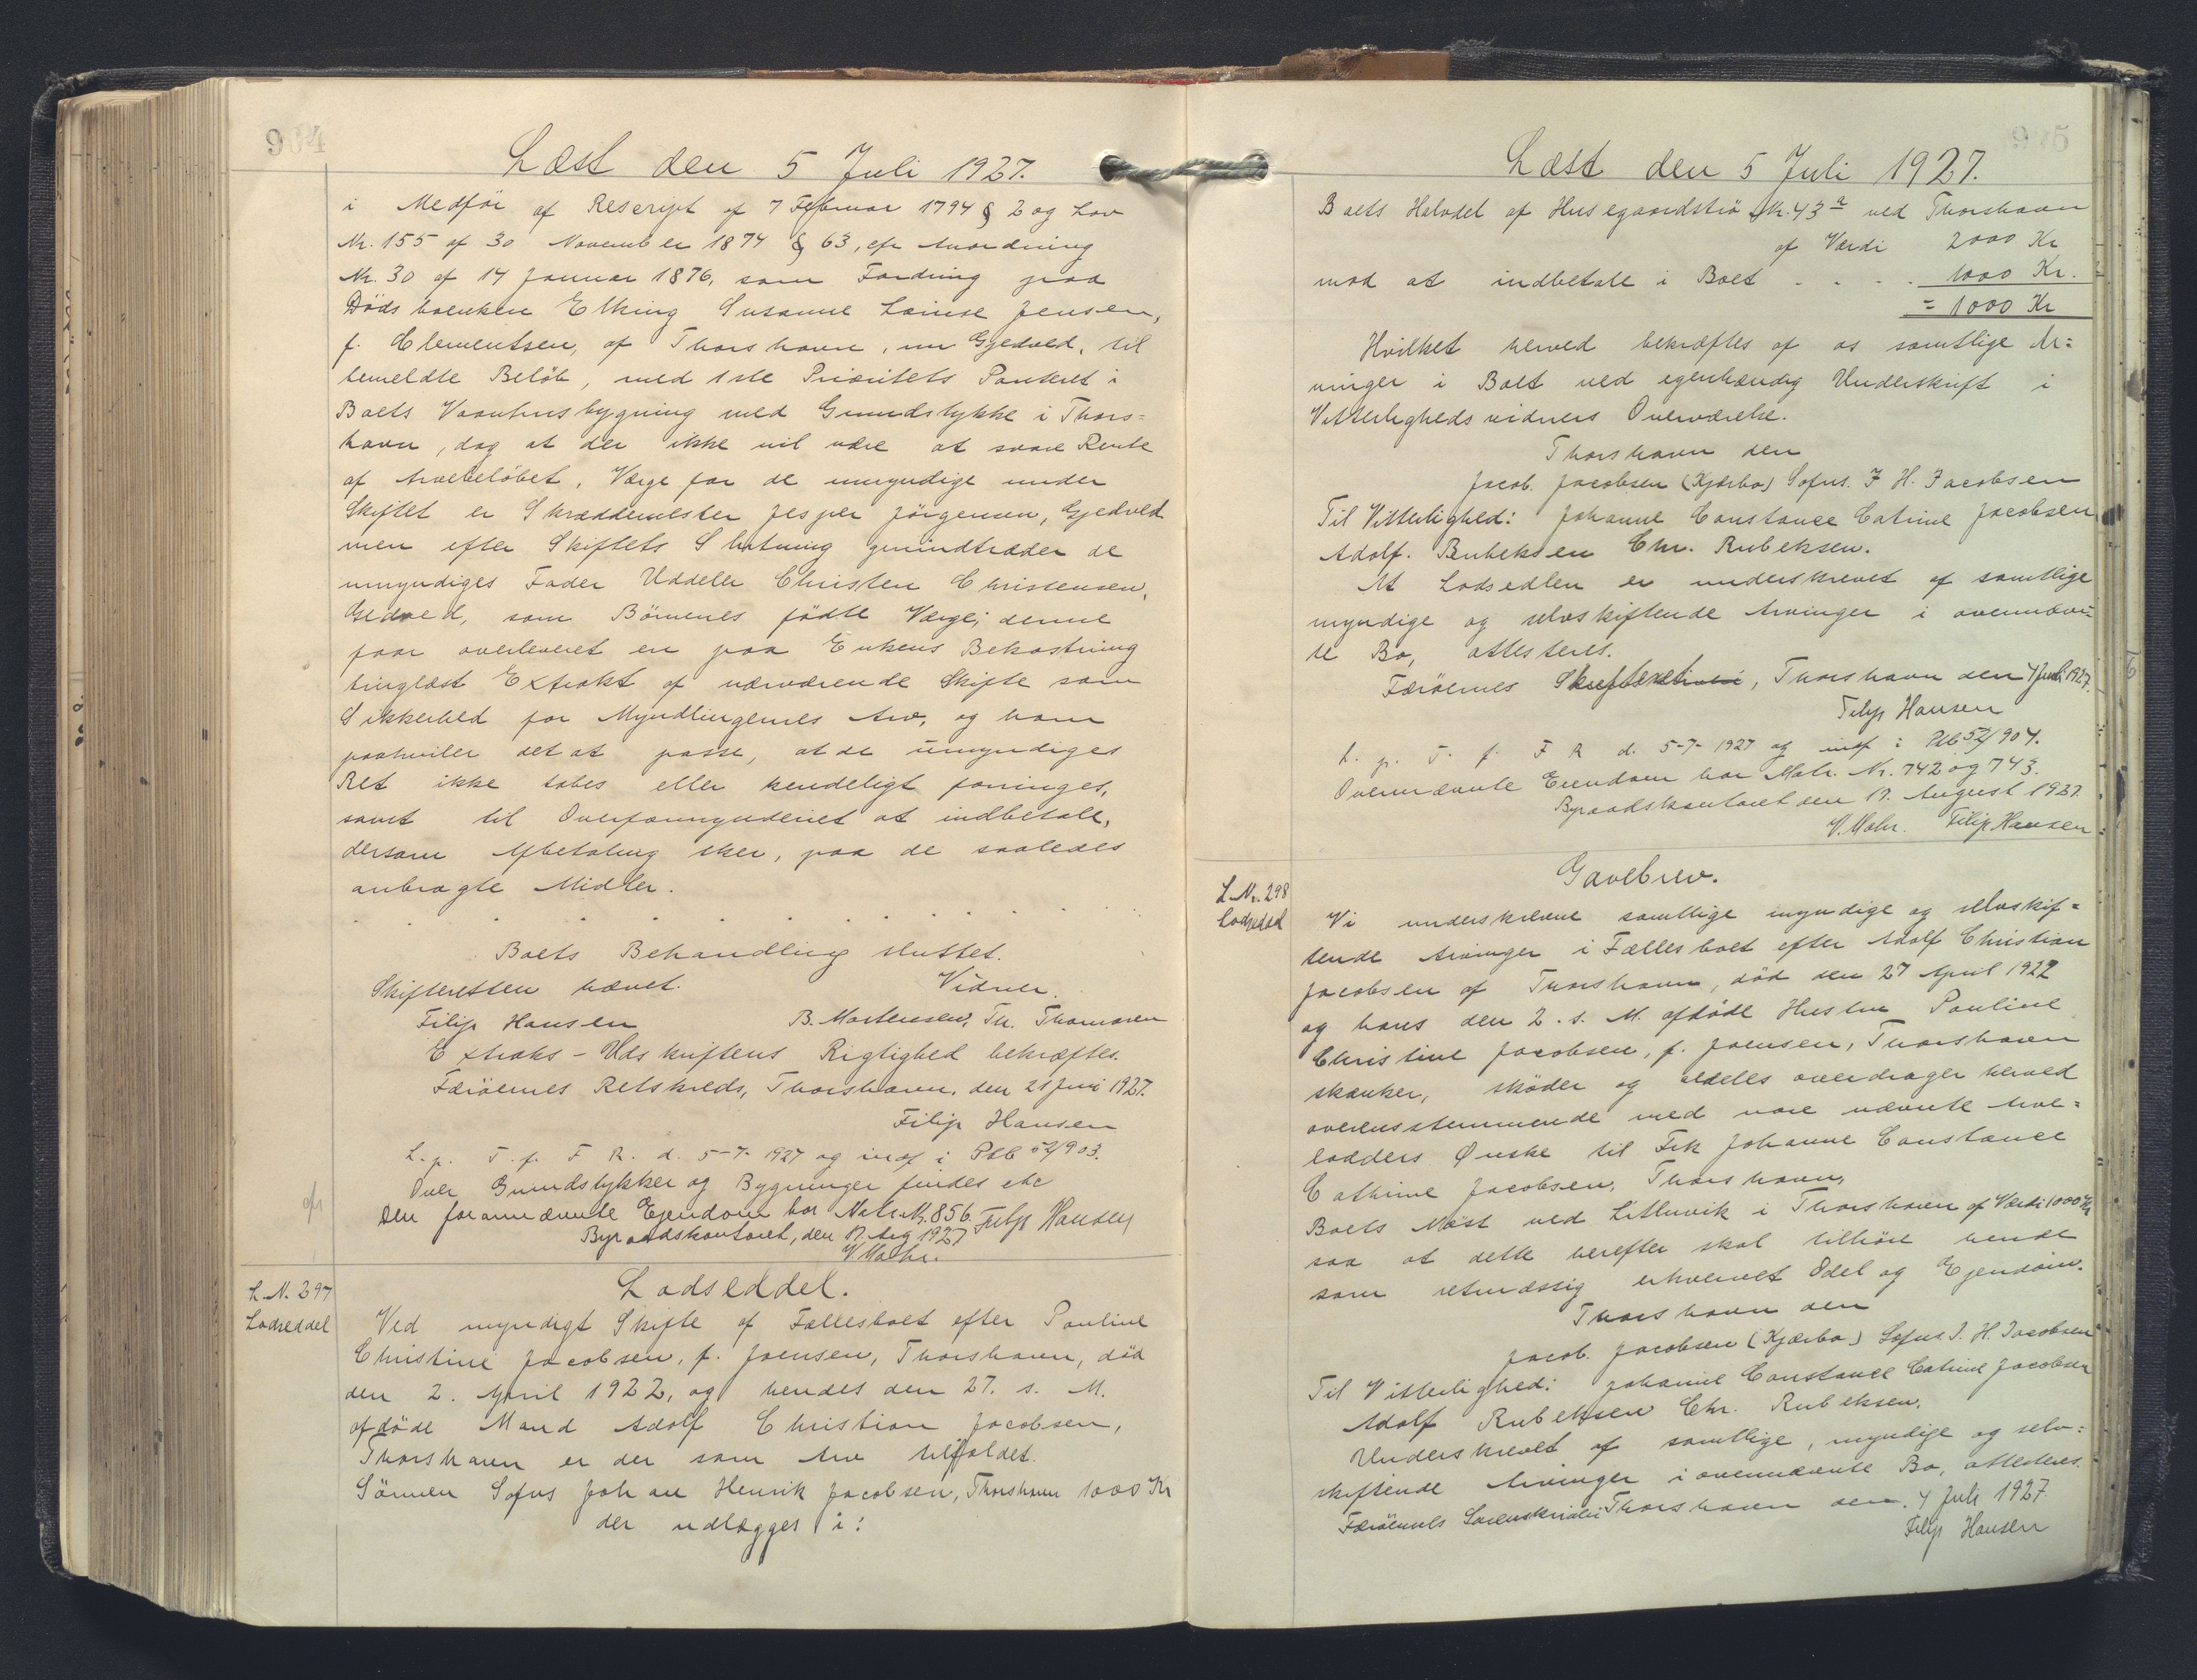 904
Læst den 5 Juli 1927.
i Medför af Rescript af 7 Februar 1794 § 2 og Lov
Nr. 155 af 30 November 1874 § 63, cfr Anordning
Nr. 30 af 14 Januar 1876, som Fordring paa
Dödsboenken Elking Susanne Louise Jensen,
f. Clementsen, af Thorshavn, nu Gjedved, til
bemeldte Belöb, med 1ste Prioritets Panteret i
Boets Vaanhusbygning med Grundstykke i Thors=
havn, dog at der ikke vil være at svare Rente
af Arvebelöbet. Værge for de umyndige under
Skiftet er Skræddemester Jesper Jörgensen, Gjedved
men efter Skiftets Slutning gjenindtræder de
umyndiges Fader Uddeler Christen Christensen,
Gedved, som Börnenes fødte Værge; denne
faar overleveret en paa Enkens Bekostning
tinglæst Extrakt af nærværende Skifte som
Sikkerhed for Myndlingernes Arv, og ham
paahviler det at passe, at de umyndiges
Ret ikke tabes eller kendeligt forringes,
samt til Overformynderiet at indbetale,
dersom Afbetaling sker, paa de saaledes
anbragte Midler.
Boets Behandling sluttet.
Skifteretten hævet. Vidner.
Filip Hansen B. Mortensen, Th. Thomasen
Extrakts-Udskriftens Rigtighed bekræftes.
Færöernes Retskreds, Thorshavn, den 21 Juni 1927.
Filip Hansen
L. p. T. f. F R. d. 5-7-1927 og indf i Pkb 52/903.
Over Grundstykker og Bygninger findes ikke
cfr
Den forannævnte Ejendom har Matr. Nr. 856.
Byraadskontoret, den 17. Aug 1927 Filip Hansen
V. Mohr.
L. N. 297
Lodseddel
Lodseddel.
Ved myndigt Skifte af Fællesboet efter Pauline
Christine Jacobsen, f. Joensen, Thorshavn, död
den 2. April 1922, og hendes den 27. s. M.
afdöde Mand Adolf Christian Jacobsen,
Thorshavn er der som Arv tilfaldet.
Sönnen Sofus Johan Henrik Jacobsen, Thorshavn 1000 Kr
der udlægges i:
905
Læst den 5 Juli 1927.
Boets Halvdel af Husegaardströ Nr. 43a ved Thorshavn
af Værdi 2000 Kr
mod at indbetale i Boet . . . . 1000 Kr.
= 1000 Kr
Hvilket herved bekræftes af os samtlige Ar=
vinger i Boet ved egenhændig Underskrift i
Vitterlighedsvidners Overværelse.
Thorshavn den
Jacob. Jacobsen (Kjærbo) Sofus. J H. Jacobsen
Til Vitterlighed: Johanne Constance Catrine Jacobsen
Adolf. Rubeksen Chr. Rubeksen.
At Lodsedlen er underskrevet af samtlige
myndige og selvskiftende Arvinger i ovennævn=
te Bo, attesteres.
Færöernes, Thorshavn den 4 Juli 1927.
Filip Hansen
L. p. T. f. F R d. 5-7-1927 og indf i Pkb 52/904.
Ovennævnte Ejendom har Matr. Nr. 742 og 743.
Byraadskontoret den 17. August 1927.
V. Mohr. Filip Hansen
L. Nr. 298
Lodseddel
Gavebrev.
Vi underskrevne samtlige myndige og selvskif=
tende Arvinger i Fællesboet efter Adolf Christian
Jacobsen af Thorshavn, död den 27 April 1922
og hans den 2. s. M. afdöde Hustru Pauline
Christine Jacobsen, f. Joensen, Thorshavn
skænker, skøder og aldeles overdrager herved
overensstemmende med vore nævnte Arve=
ladders Ønske til Frk Johanne Constance
Cathrine Jacobsen, Thorshavn,
Boets Nøst ved Litluvik i Thorshavn af Værdi 1000 Kr
saa at dette herefter skal tilhöre hende
som retmæssig erhvervet Odel og Ejendom.
Thorshavn den
Jacob. Jacobsen (Kjærbo) Sofus J. H. Jacobsen
Til Vitterlighed: Johanne Constance Catrine Jacobsen
Adolf Rubeksen Chr. Rubeksen.
Underskrevet af samtlige, myndige og selv=
skiftende Arvinger i ovennævnte Bo, attesteres.
Færöernes Sorenskriveri Thorshavn den. 4 Juli 1927
Filip Hansen